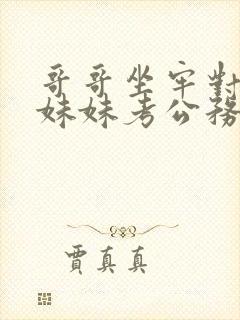 哥哥坐牢對
妹妹考公務
賈真真